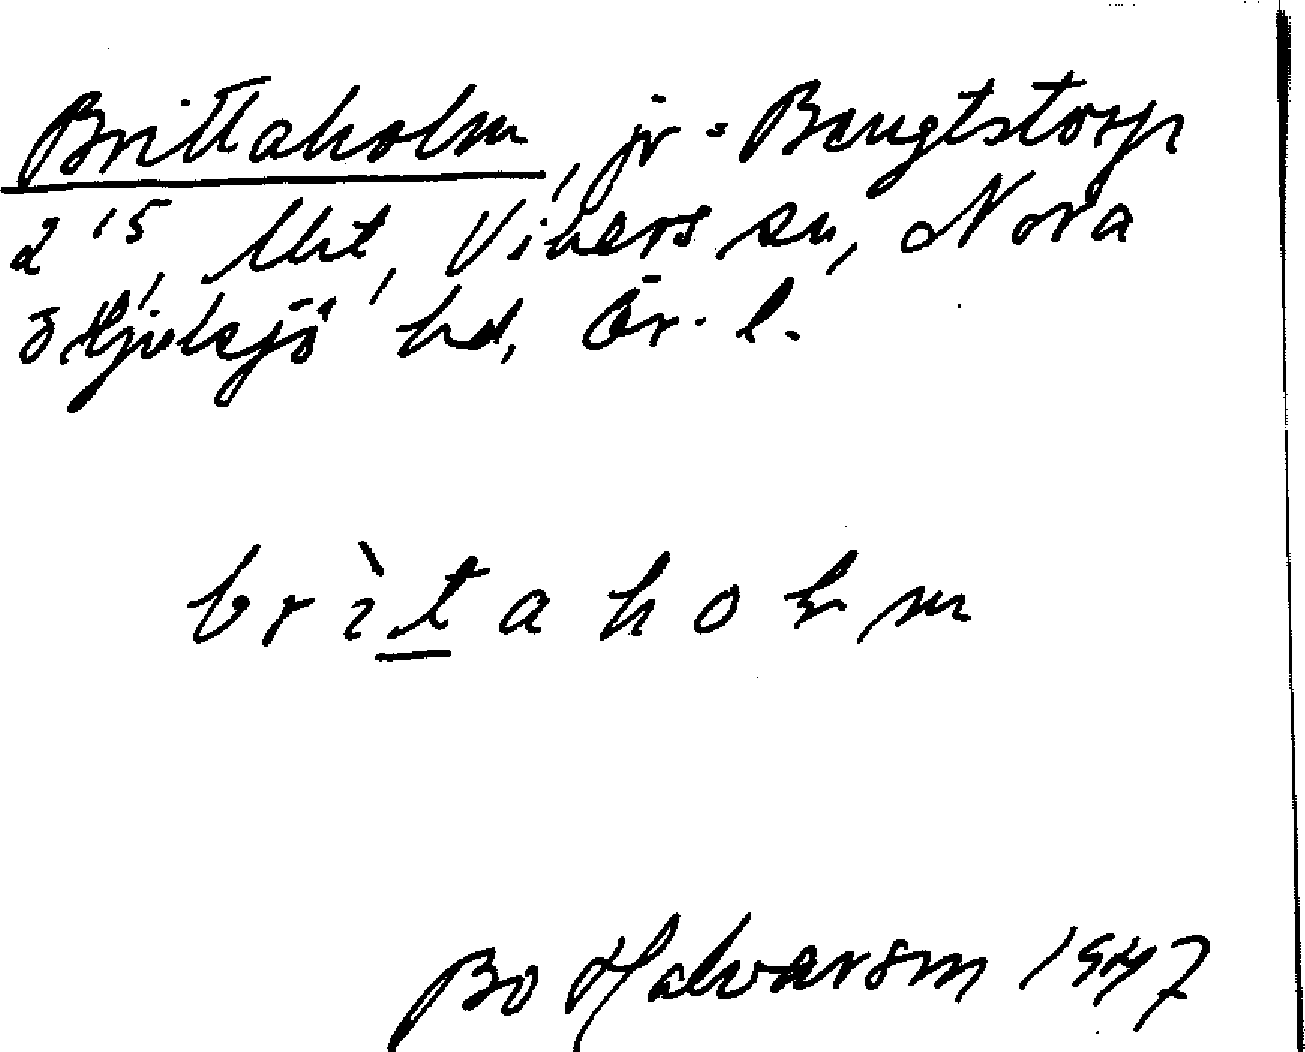 Brittaholm, jr = Bengtstorp
2¹⁵, Ukt, Vikers sn, Nora
o Hjulsjö hd, Ör. l.
brìtahołm
Bo Halvarson 1947